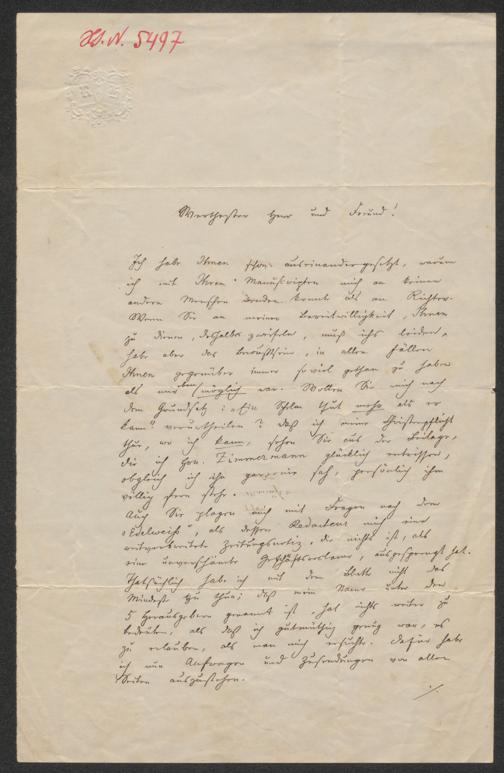 H.I.N. 5497
Werthester Herr und Freund!
Ich habe Ihnen schon auseinandergesetzt, warum
ich mit Ihren Manuskripten mich an keinen
andern Menschen wenden konnte als an Richter.
Wenn Sie an meiner Bereitwilligkeit, Ihnen
zu dienen, deshalb zweifeln, muß ichs leiden,
habe aber das Bewußtsein, in allen Fällen
Ihnen gegenüber immer so viel gethan zu haben
als mir eben möglich war. Wollen Sie mich nach
dem Grundsatz: "Ein Schelm thut mehr als er
kann" verurtheilen? Daß ich meine Christenpflicht
thue, wo ich kann, sehen Sie aus der Beilage,
die ich Hrn. Zimmermann glücklich entrissen,
obgleich ich ihn nie sah, persönlich ihm
völlig fern stehe.
Auch Sie plagen mich mit Fragen nach dem
"Edelweiß", als dessen Redacteur mich eine
weitverbreitete Zeitungsnotiz, die nichts ist, als
eine unverschämte Geschäftsreclame, ausgesprengt hat.
Thatsächlich habe ich mit dem Blatte nicht das
Mindeste zu thun; daß mein Name unter den
5 Herausgebern genannt ist, hat nichts weiter zu
bedeuten, als daß ich gutmüthig genug war, es
zu erlauben, als man mich ersuchte. Dafür habe
ich nun Anfragen und Zusendungen von allen
Seiten auszustehen.
./.